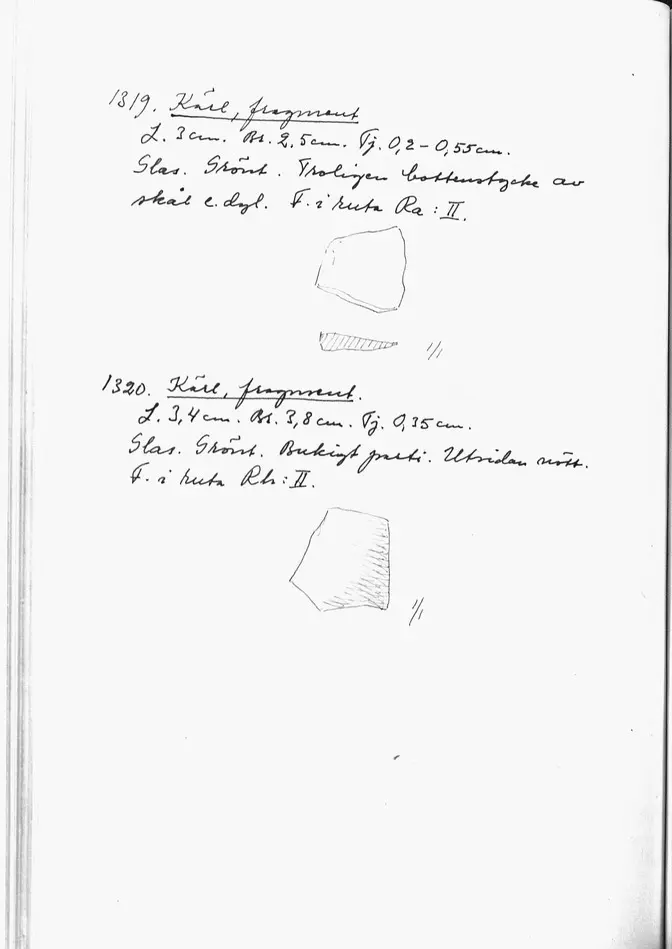 1319. Kärl, fragment
L. 3 cm. Br. 2,5 cm. Tj. 0,2 - 0,55 cm.
Glas. Grönt. Troligen bottenstycke av
skål e. dyl. F. i ruta Ra : II.
1/1
1320. Kärl, fragment.
L. 3,4 cm. Br. 3,8 cm. Tj. 0,35 cm.
Glas. Grönt. Bukigt parti. Utsidan nött.
F. i ruta Rh : II.
1/1